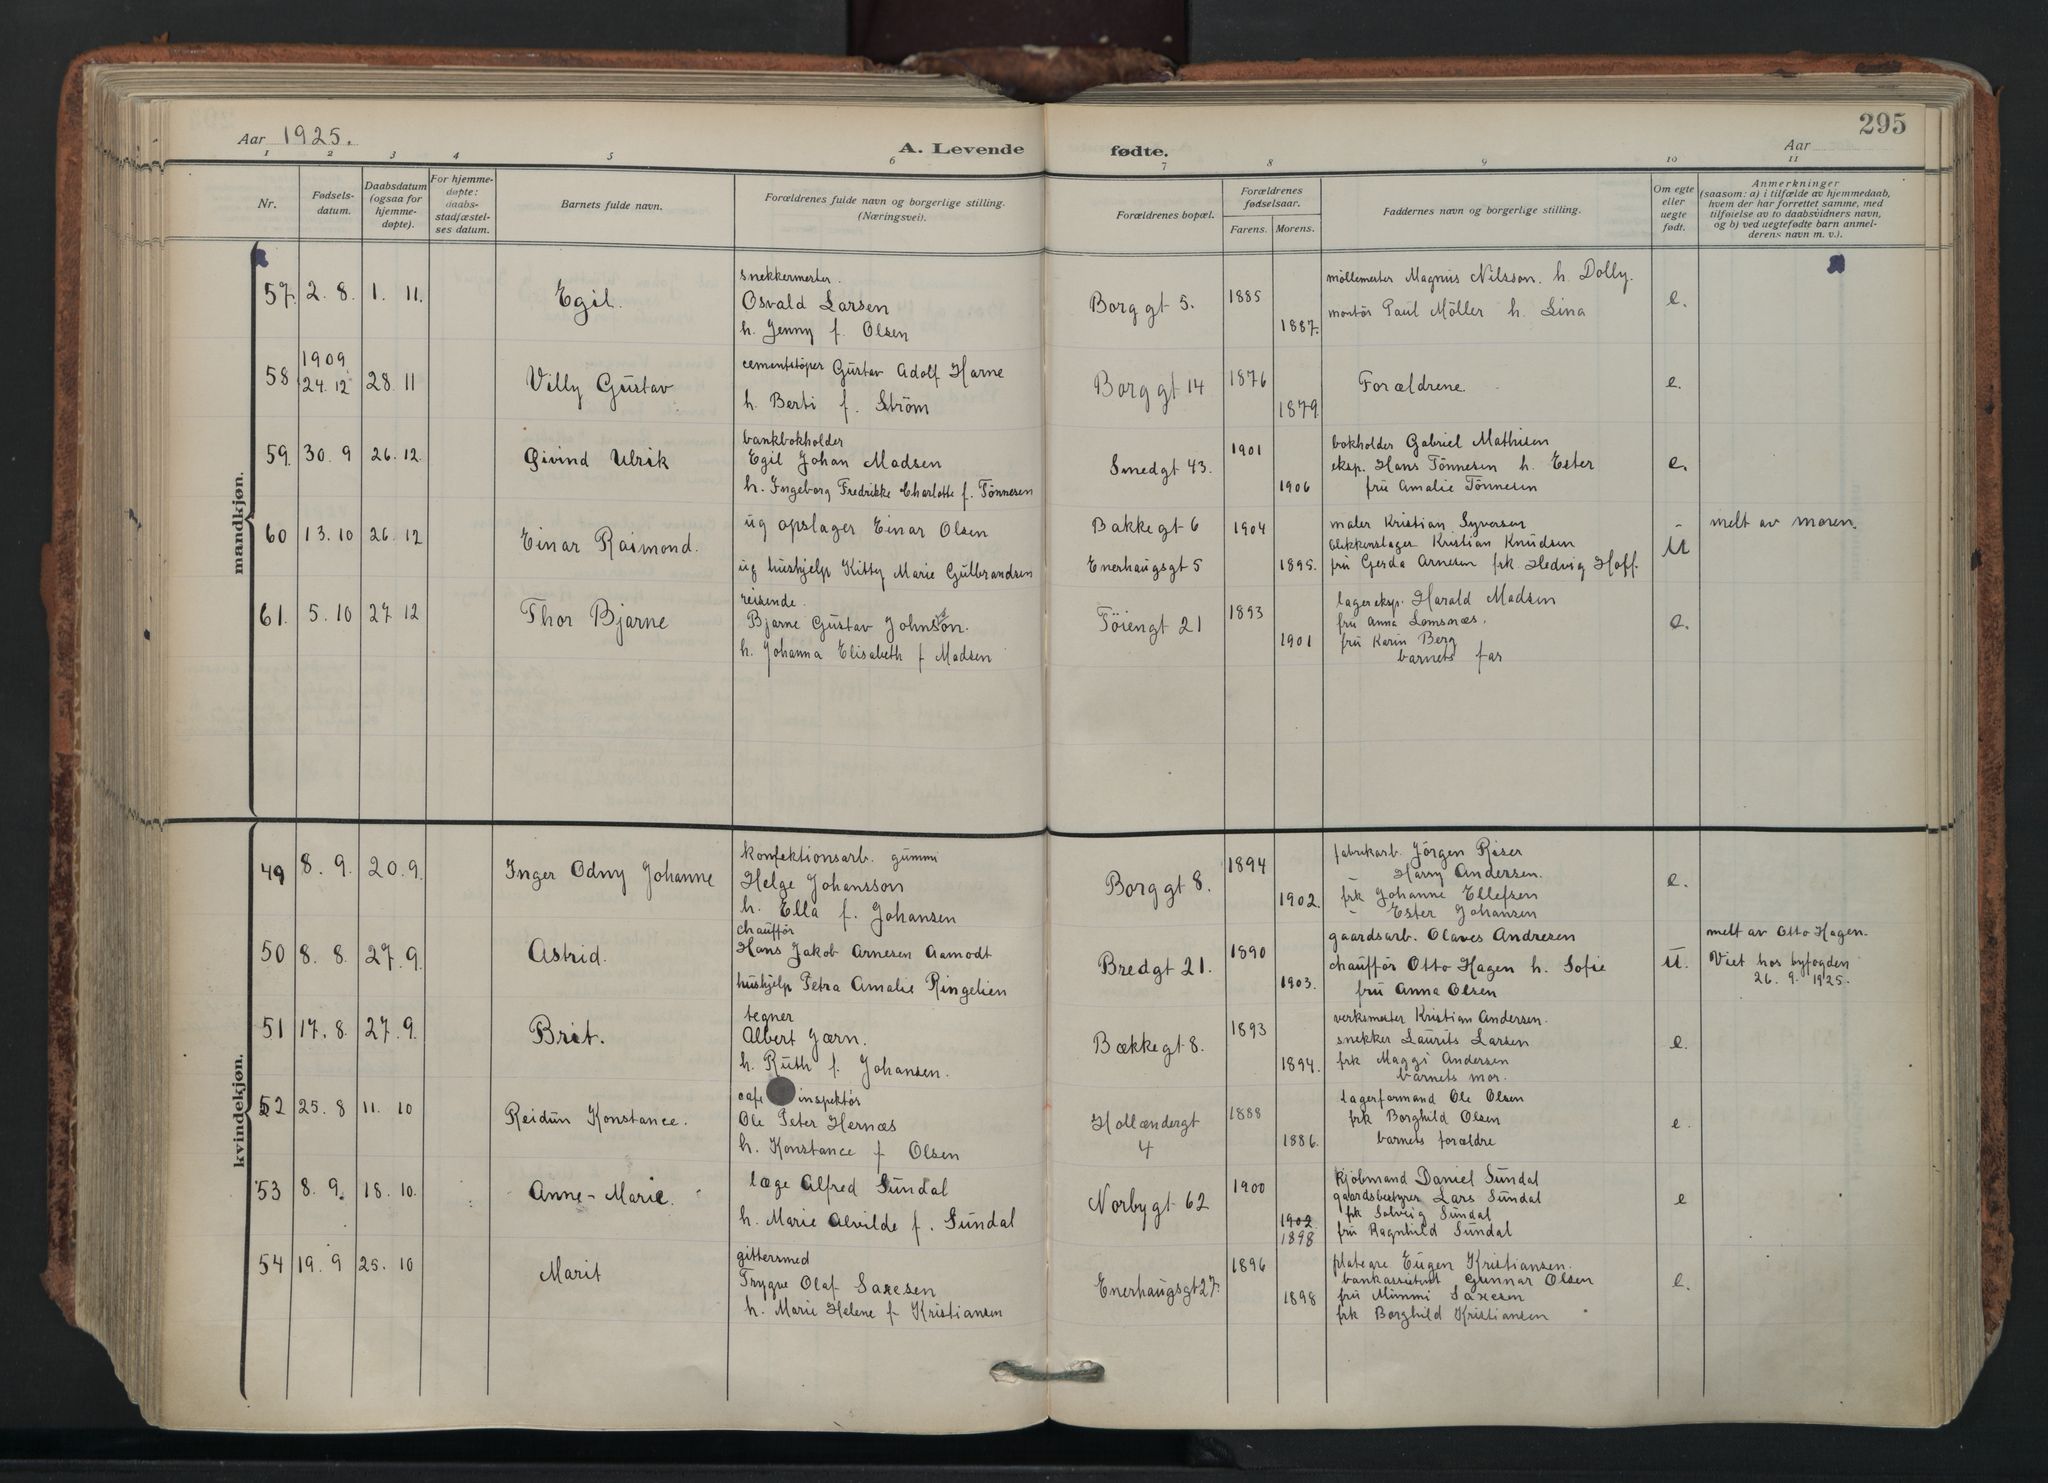 295
Aar 1925.
A. Levende fødte.
Aar
1 2 3 4 5 6 7 8 9 10 11
Nr.
Fødsels-
datum.
Daabsdatum
(ogsaa for
hjemme-
døpte).
For hjemme-
døpte:
daabs-
stadfæstel-
ses datum.
Barnets fulde navn.
Forældrenes fulde navn og borgerlige stilling.
(Næringsvei).
Forældrenes bopæl.
Forældrenes
fødselsaar.
Farens. Morens.
Faddernes navn og borgerlige stilling.
Om egte
eller
uegte
født.
Anmerkninger
(saasom: a) i tilfælde av hjemmedaab,
hvem der har forrettet samme, med
tilføielse av to daabsvidners navn,
og b) ved uegtefødte barn anmel-
derens navn m. v.).
mandkjøn.
57. 2. 8. 1. 11. Egil.
snekkermester.
Osvald Larsen
h. Jenny f. Olsen
Borggt 5. 1885 1887.
møllemester Magnus Nilsson. h. Dolly.
montør Paul Möller h. Lina
e.
58 1909
24. 12 28. 11 Villy Gustav
cementstøper Gustav Adolf Harne
h. Berti f. Ström
Borggt 14 1876 1879.
Forældrene.
e.
59. 30. 9 26. 12. Øivind Ulrik
bankbokholder
Egil Johan Madsen
h. Ingeborg Fredrikke Charlotte f. Tönnesen
Smedgt 43. 1901 1906
bokholder Gabriel Mathisen
eksp. Hans Tönnesen h. Ester
fru Amalie Tönnesen
e.
60 13. 10 26. 12 Einar Raimond.
ug opslager Einar Olsen
ug hushjelp Kitty Marie Gulbrandsen
Bakkegt 6
Enerhaugsgt 5
1904 1895.
maler Kristian Syversen
blikkenslager Kristian Knudsen
fru Gerda Arnesen frk Hedvig Hoff.
U
melt av moren.
61. 5. 10 27. 12 Thor Bjarne
reisende.
Bjarne Gustav Johnson.
h. Johanna Elisabeth f Madsen
Töiengt 21 1893 1901
lagereksp. Harald Madsen
fru Anna Lomsnæs.
fru Karin Berg
barnets far
e.
kvindekjøn.
49 8. 9. 20. 9. Inger Odny Johanne
konfektionsarb. gummi
Helge Johansson
h. Ella f. Johansen
Borggt 8. 1894 1902.
fabrikarb. Jörgen Riser
– Harry Andersen.
frk Johanne Ellefsen
– Ester Johansen
e.
50 8. 8. 27. 9. Astrid.
chauffør
Hans Jakob Arnesen Aamodt
hushjelp Petra Amalie Ringelien
Bredgt 21. 1890 1903.
gaardsarb. Olaves Andresen
chauffør Otto Hagen h. Sofie
fru Anna Olsen
U.
melt av Otto Hagen.
Viet hos byfogden
26. 9. 1925.
51 17. 8. 27. 9. Brit.
tegner
Albert Jærn.
h. Ruth f. Johansen.
Bækkegt 8. 1893 1894.
verksmester Kristian Andersen.
snekker Laurits Larsen
frk Maggi Andersen
barnets mor.
e.
52 25. 8 11. 10 Reidun Konstance.
cafe inspektør
Ole Peter Hernæs
h. Konstance f Olsen
Hollændergt
4
1888 1886.
lagerformand Ole Olsen
frk Borghild Olsen
barnets forældre
e.
53 8. 9. 18. 10. Anne-Marie.
læge Alfred Sundal
h. Marie Alvilde f. Sundal
Norbygt 62 1900 1902 1898
kjöbmand Daniel Sundal
gaardsbestyrer Lars Sundal
frk Solveig Sundal
fru Ragnhild Sundal
e
54 19. 9 25. 10 Marit
gittersmed
Trygve Olaf Saxesen
h. Marie Helene f Kristiansen
Enerhaugsgt 27. 1896 1898
Eugen Kristiansen.
bankassistent Gunnar Olsen
fru Mimmi Saxesen
frk Borghild Kristiansen
e.